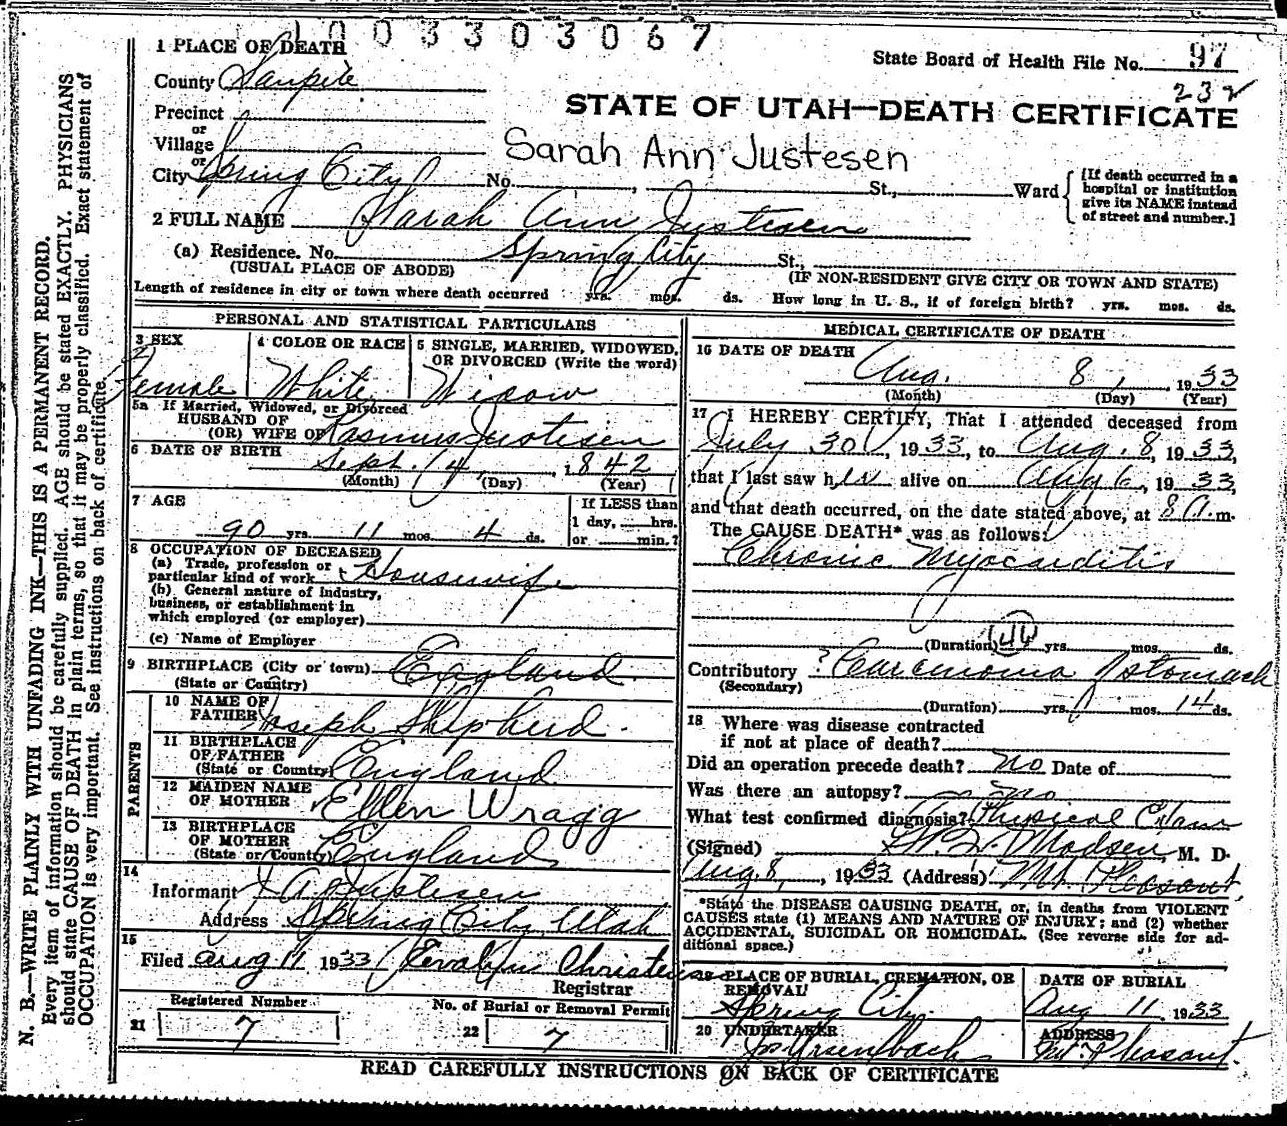 1003303067
State Board of Health File No. 97
232
1 PLACE OF DEATH
County Sanpete
STATE OF UTAH—DEATH CERTIFICATE
Precinct
or
Village
or
Sarah Ann Justesen
City Spring City No. , St., Ward
[If death occurred in a hospital or institution give its NAME instead of street and number.]
2 FULL NAME Sarah Ann Justesen
(a) Residence. No. Spring City St.,
(USUAL PLACE OF ABODE) (IF NON-RESIDENT GIVE CITY OR TOWN AND STATE)
Length of residence in city or town where death occurred yrs. mos. ds. How long in U. S., if of foreign birth? yrs. mos. ds.
PERSONAL AND STATISTICAL PARTICULARS
3 SEX
Female
4 COLOR OR RACE
White
5 SINGLE, MARRIED, WIDOWED,
OR DIVORCED (Write the word)
Widow
5a If Married, Widowed, or Divorced
HUSBAND OF
(OR) WIFE OF Rasmus Justesen
6 DATE OF BIRTH Sept. 14, 1842
(Month) (Day) (Year)
7 AGE
90 yrs. 11 mos. 4 ds.
If LESS than
1 day, hrs.
or min.?
8 OCCUPATION OF DECEASED
(a) Trade, profession or
particular kind of work Housewife
(b) General nature of Industry,
business, or establishment in
which employed (or employer)
(c) Name of Employer
9 BIRTHPLACE (City or town) England
(State or Country)
PARENTS
10 NAME OF
FATHER Joseph Shepherd
11 BIRTHPLACE
OF FATHER
(State or Country) England
12 MAIDEN NAME
OF MOTHER Ellen Wragg
13 BIRTHPLACE
OF MOTHER
(State or Country) England
14
Informant J A Justesen
Address Spring City, Utah
15
Filed Aug 11 1933 Evalyn Christensen
Registrar
Registered Number
21 7
No. of Burial or Removal Permit
22 7
MEDICAL CERTIFICATE OF DEATH
16 DATE OF DEATH
Aug. 8, 1933
(Month) (Day) (Year)
17 I HEREBY CERTIFY, That I attended deceased from
July 30, 1933, to Aug. 8, 1933,
that I last saw her alive on Aug 6, 1933,
and that death occurred, on the date stated above, at 8 A.m.
The CAUSE DEATH* was as follows:
Chronic Myocarditis
(Duration) yrs. mos. ds.
Contributory ? Carcinoma of stomach
(Secondary)
(Duration) yrs. mos. 14 ds.
18 Where was disease contracted
if not at place of death?
Did an operation precede death? no Date of
Was there an autopsy? no
What test confirmed diagnosis? Physical Exam
(Signed) Madsen, M. D.
Aug. 8, 1933 (Address) Mt. Pleasant
*State the DISEASE CAUSING DEATH, or, in deaths from VIOLENT
CAUSES state (1) MEANS AND NATURE OF INJURY; and (2) whether
ACCIDENTAL, SUICIDAL OR HOMICIDAL. (See reverse side for ad-
ditional space.)
PLACE OF BURIAL, CREMATION, OR
REMOVAL
Spring City
DATE OF BURIAL
Aug 11, 1933
20 UNDERTAKER
ADDRESS
Mt. Pleasant.
READ CAREFULLY INSTRUCTIONS ON BACK OF CERTIFICATE
N. B.—WRITE PLAINLY WITH UNFADING INK—THIS IS A PERMANENT RECORD.
Every item of information should be carefully supplied. AGE should be stated EXACTLY. PHYSICIANS
should state CAUSE OF DEATH in plain terms, so that it may be properly classified. Exact statement of
OCCUPATION is very important. See instructions on back of certificate.